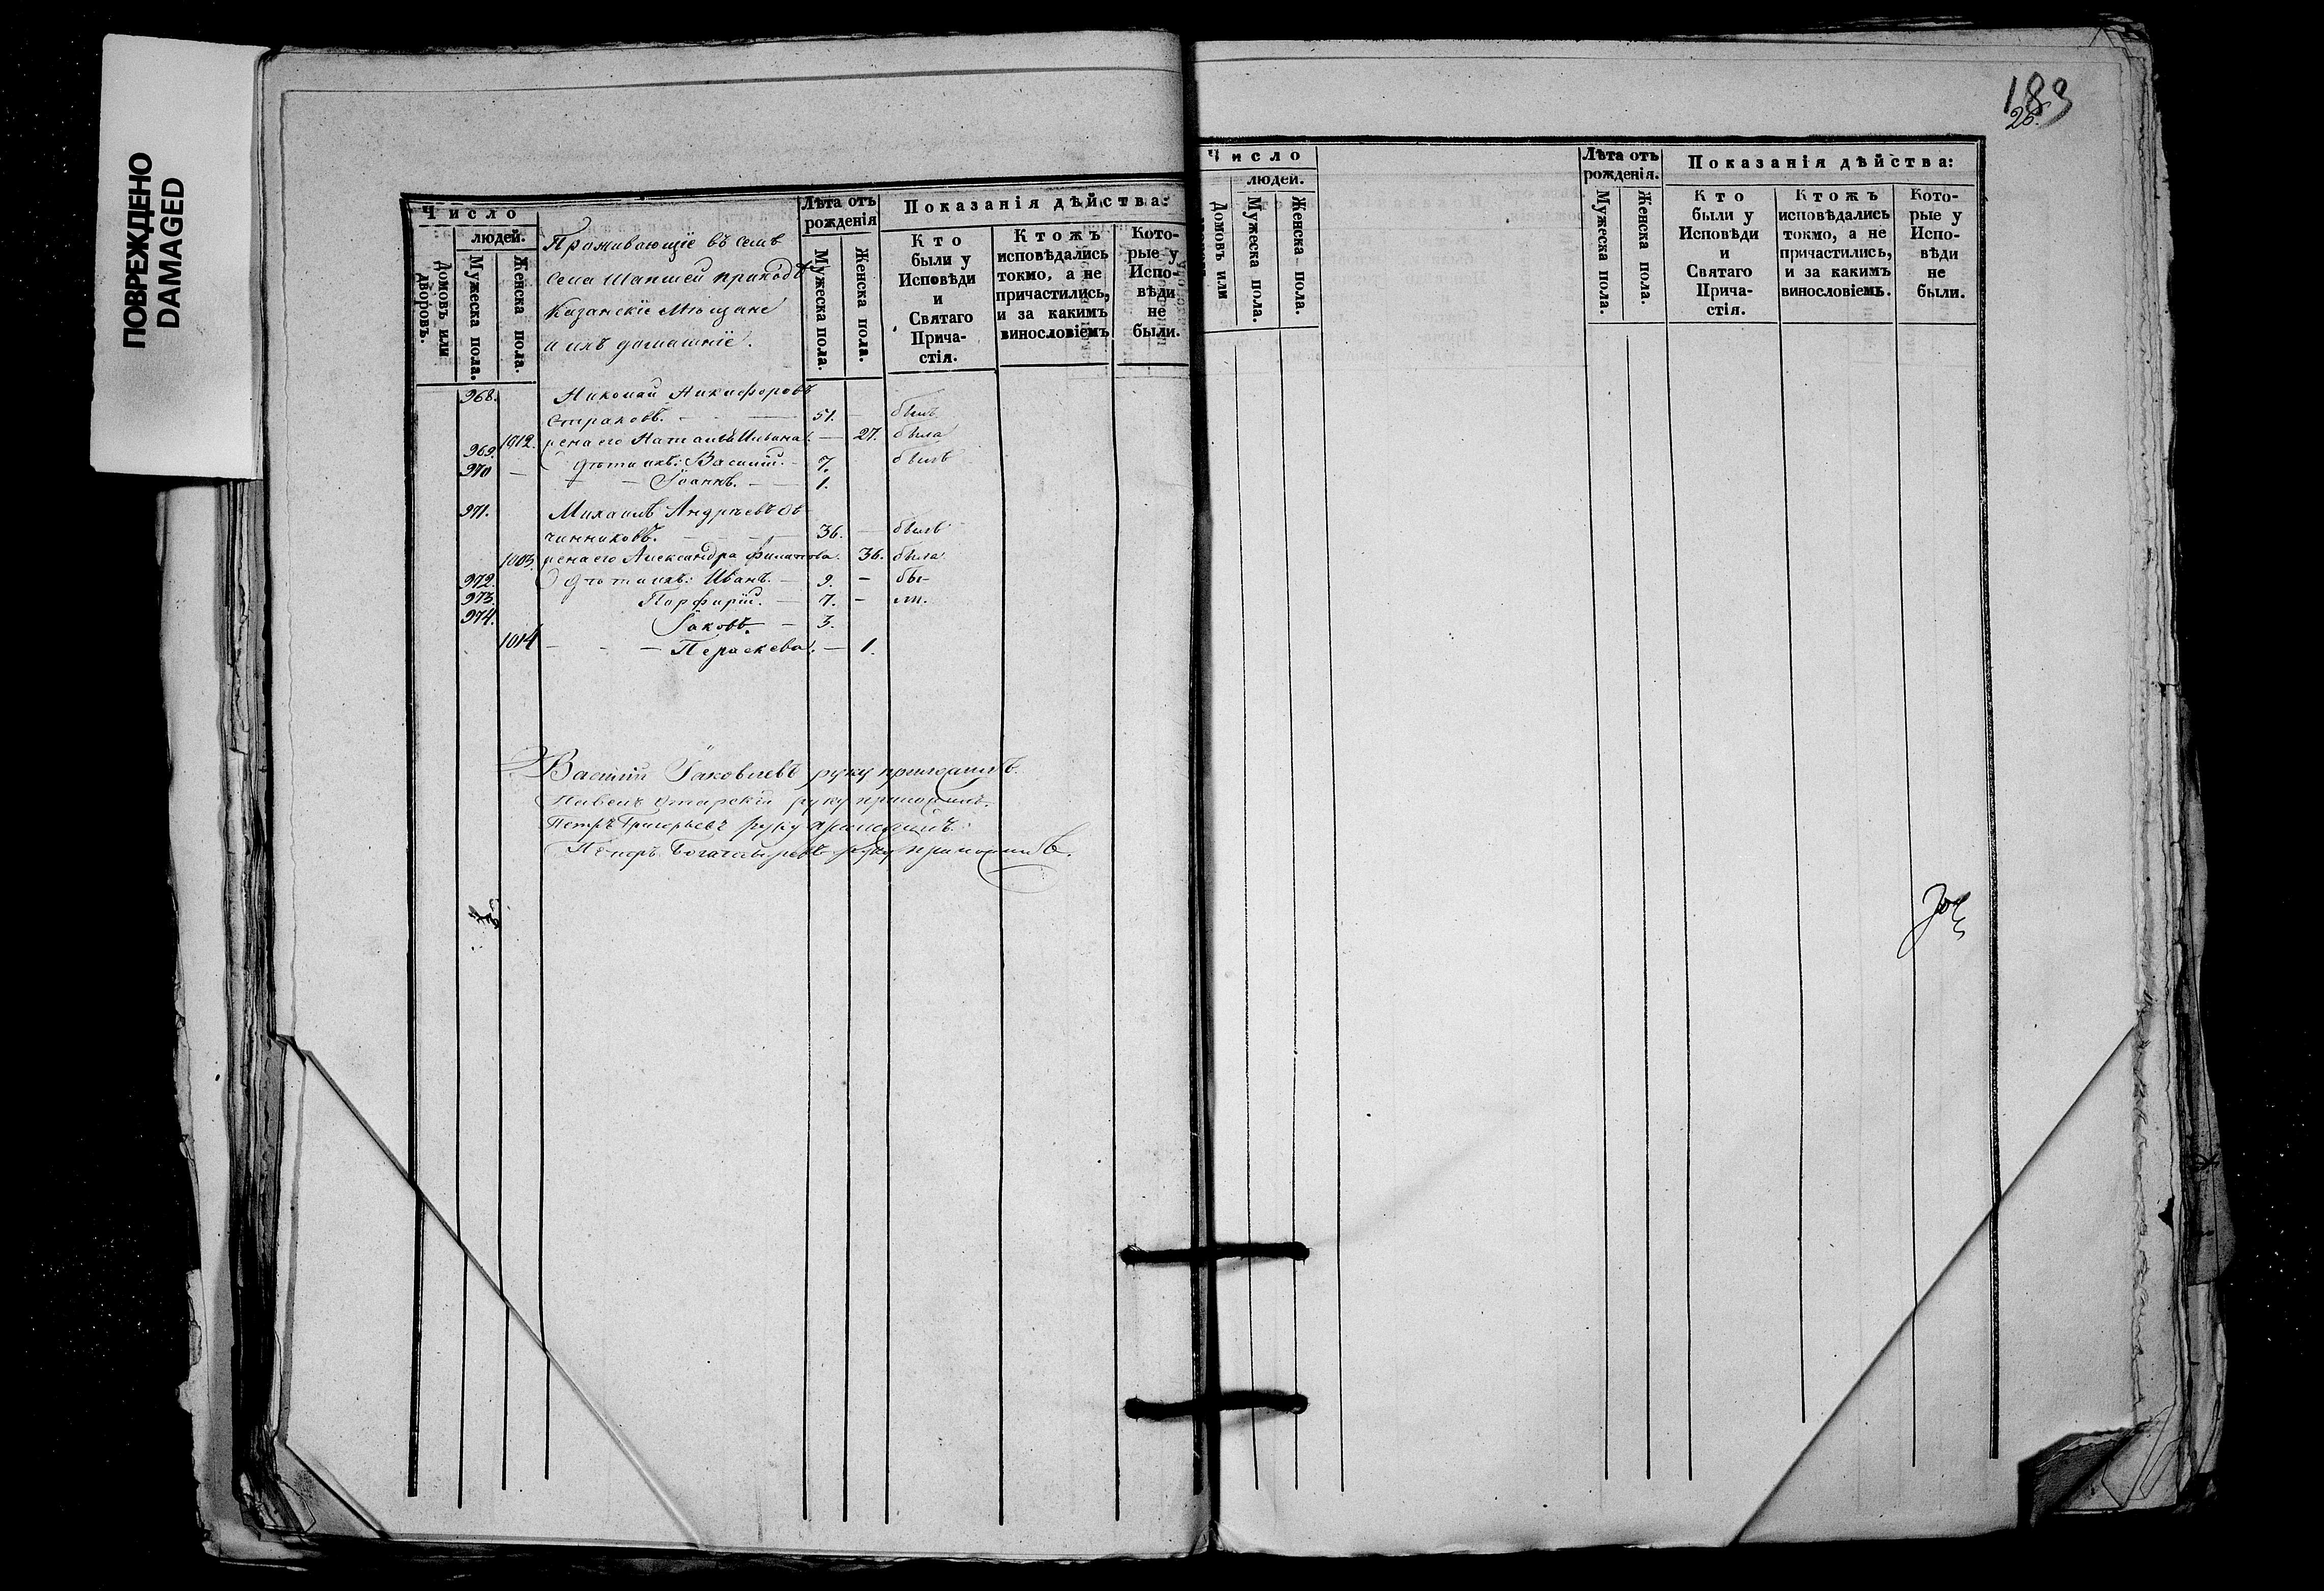 ПОВРЕЖДЕНО
DAMAGED
Число
людей.
Домовъ или дворовъ.
Мужеска пола.
Женска пола.
Проживающіе въ семъ
селѣ Шапшей приходѣ
Казанскіе Мѣщане
и ихъ домашніе.
Лѣта отъ
рожденія
Мужеска пола.
Женска пола.
Показанія дѣйства:
Кто
были у
Исповѣди
и
Святаго
Прича-
стія.
Ктожъ
исповѣдались
токмо, а не
причастились,
и за какимъ
винословіемъ
Кото-
рые у
Испо-
вѣди
не
были.
968. Николай Никифоровъ
Страховъ. — 51. — былъ
1012. жена его Наталья — 27. была
969. дѣти ихъ: Василій. — 7. былъ
970 — Іоаннъ. — 1.
971. Михаилъ Андрѣевъ Ов
чинниковъ. — 36. — былъ
1013. жена его Александра Филипова. 36. была
972. дѣти ихъ: Иванъ. — 9. — бы-
973. Порфирій. — 7. — ли.
974. Іаковъ. — 3.
1014 — — — Параскева. — 1.
Василій Іаковлевъ руку приложилъ.
Павелъ руку приложилъ.
Петръ Григорьевъ руку приложилъ.
Петръ Богатыревъ руку приложилъ.
183
26.
Число
людей.
Домовъ или
Мужеска пола.
Женска пола.
Лѣта отъ
рожденія.
Мужеска пола.
Женска пола.
Показанія дѣйства:
Кто
были у
Исповѣди
и
Святаго
Прича-
стія.
Ктожъ
исповѣдались
токмо, а не
причастились,
и за какимъ
винословіемъ.
Кото-
рые у
Испо-
вѣди
не
были.